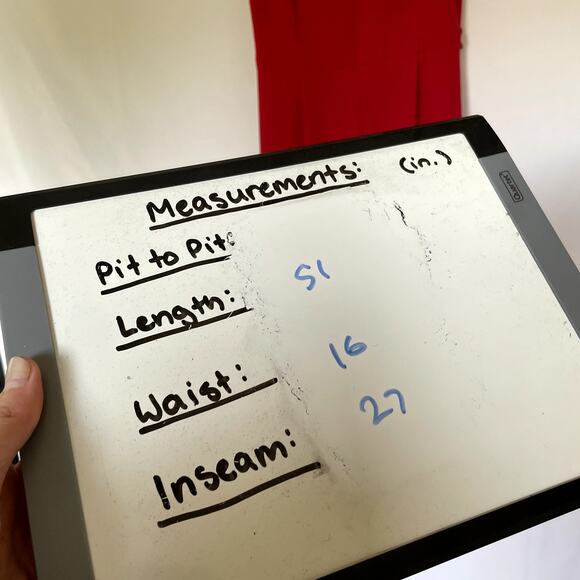 Measurements: (in.)
Pit to Pit:
Length: 51
Waist: 16
Inseam: 27
QUARTET